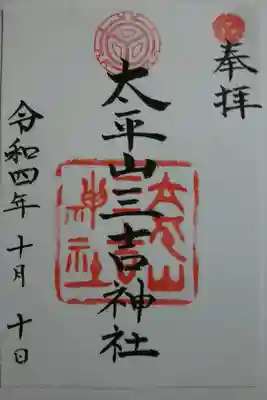 奉拝
太平山三吉神社
令和四年 十月 十日
太平山
三吉
神社